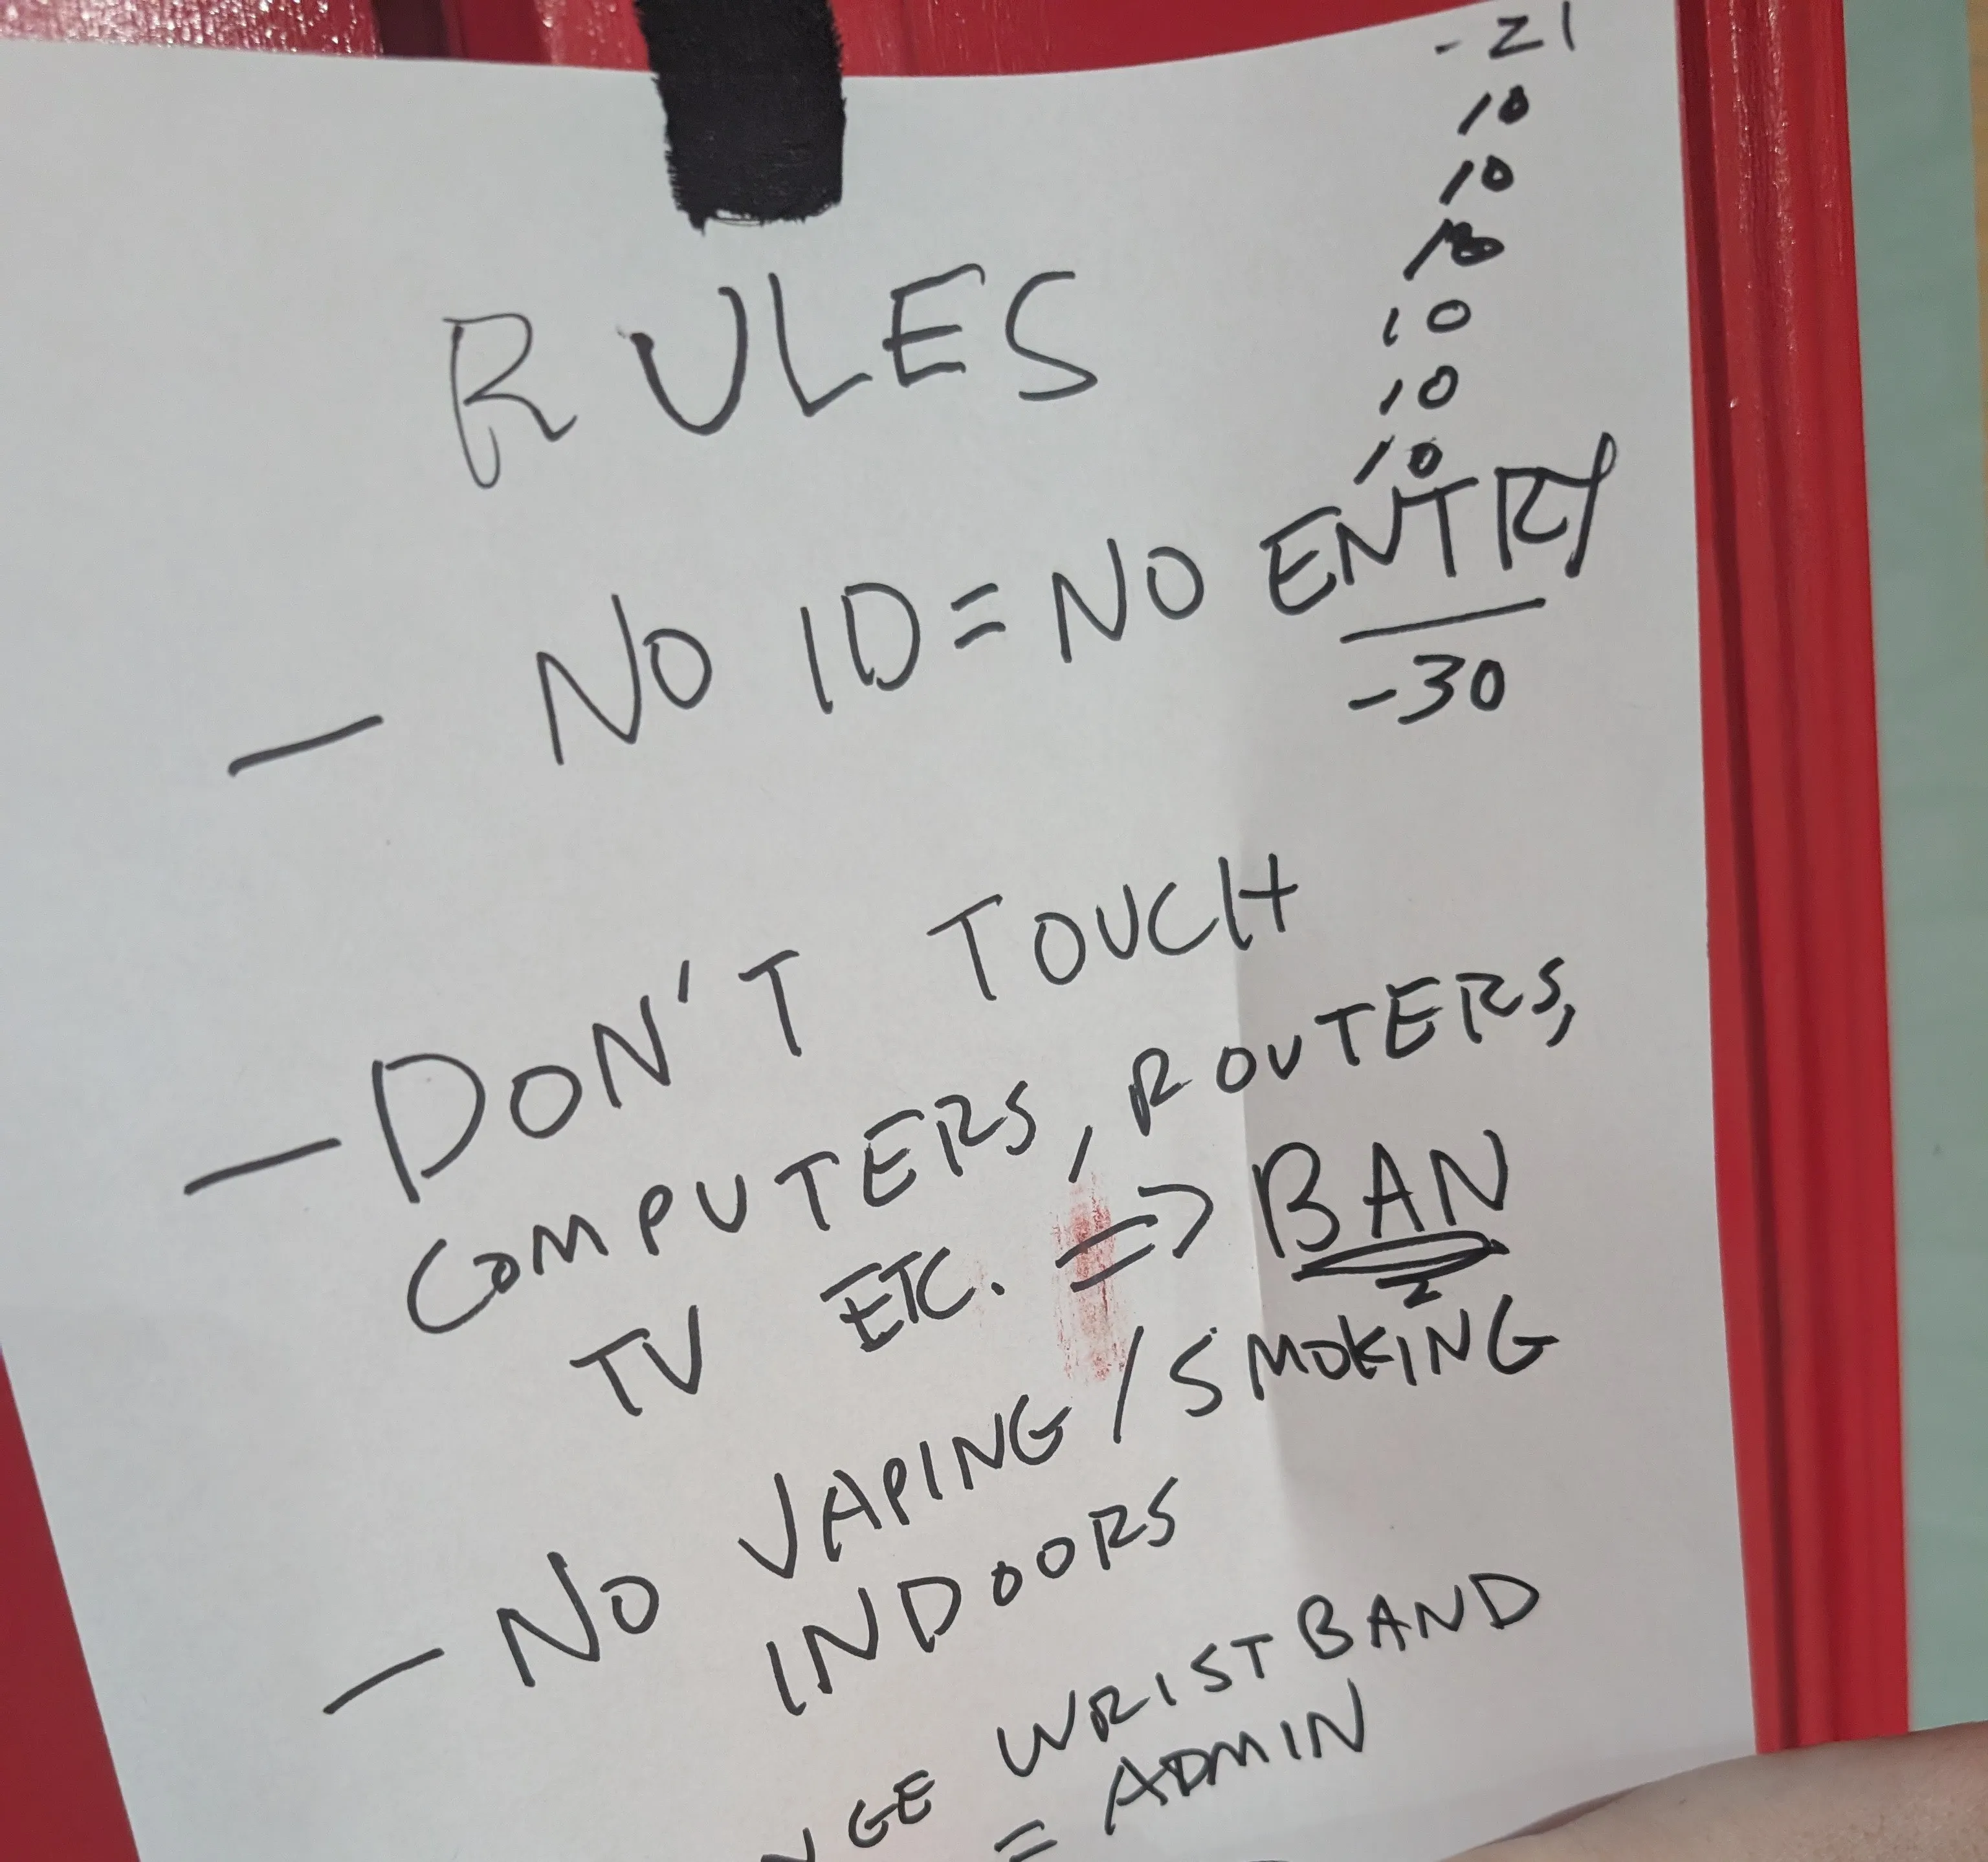 - 21
10
10
10
10
10
RULES
- NO ID = NO ENTRY
-30
- DON'T TOUCH
COMPUTERS, ROUTERS,
TV ETC. => BAN
- NO VAPING / SMOKING
INDOORS
WRISTBAND
= ADMIN